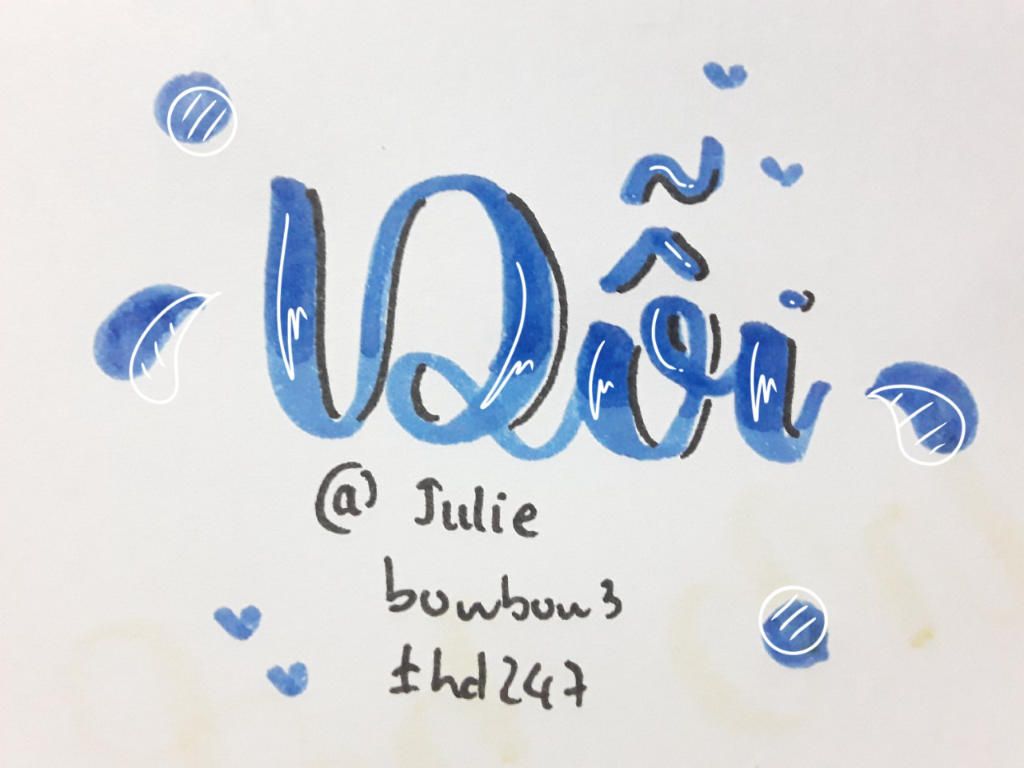 Dỗi
@ Julie
bonbon3
thd247